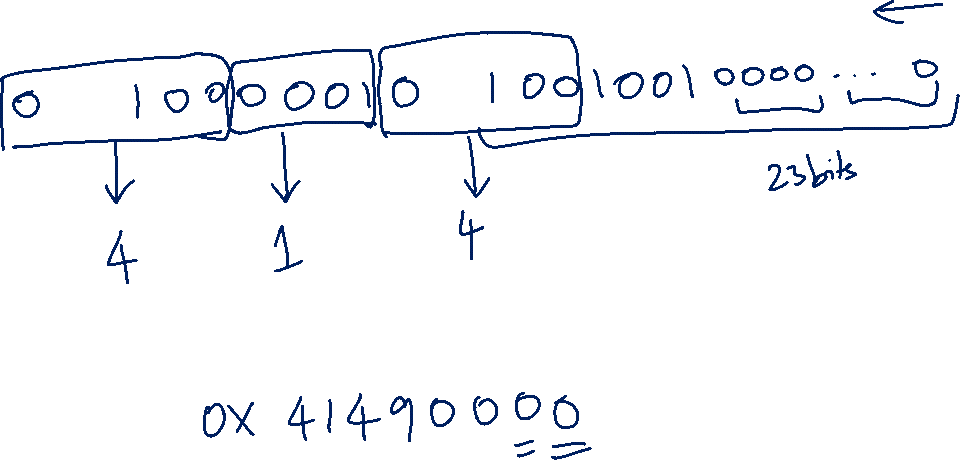 0 1 0 0 0 0 0 1 0 1 0 0 1 0 0 1 0 0 0 0 ... 0
23 bits
4 1 4
0x 41490000